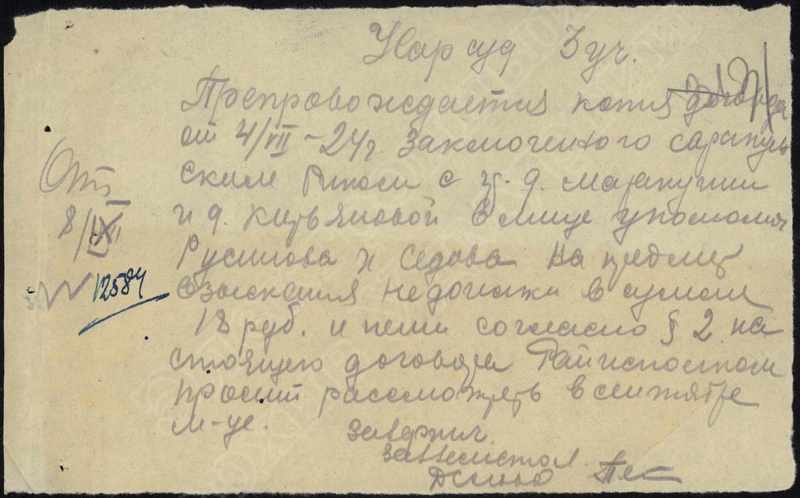 Нарсуд 3 уч.
Препровождается копия договора
от 4/VII-24г. заключенного сарапуль
ским Риком с гр. д.
и д. в лице уполом.
Русинова и Седова на предмет
взыскания недоимки в сумме
18 руб. и пени согласно § 2 на
стоящего договора Райисполком
просит рассмотреть в сентябре
м-це.
Отп
8/IX
N 12584